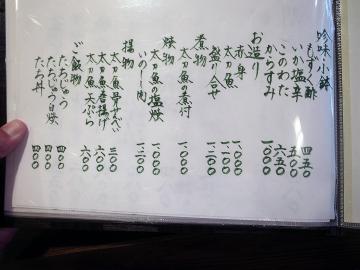 吟味・小鉢
もずく酢 四五〇
いか塩辛 五〇〇
このわた 六五〇
からすみ 一〇〇〇
お造り
赤身 一〇〇〇
太刀魚 一一〇〇
盛り合せ 一二〇〇
煮物
太刀魚の煮付 一〇〇〇
焼物
太刀魚の塩焼 一〇〇〇
いのしし肉
揚物
太刀魚骨せんべい 三〇〇
太刀魚唐揚げ 六〇〇
太刀魚天ぷら 六〇〇
ご飯物
たちじゅう
たちじゅう白焼
たち丼